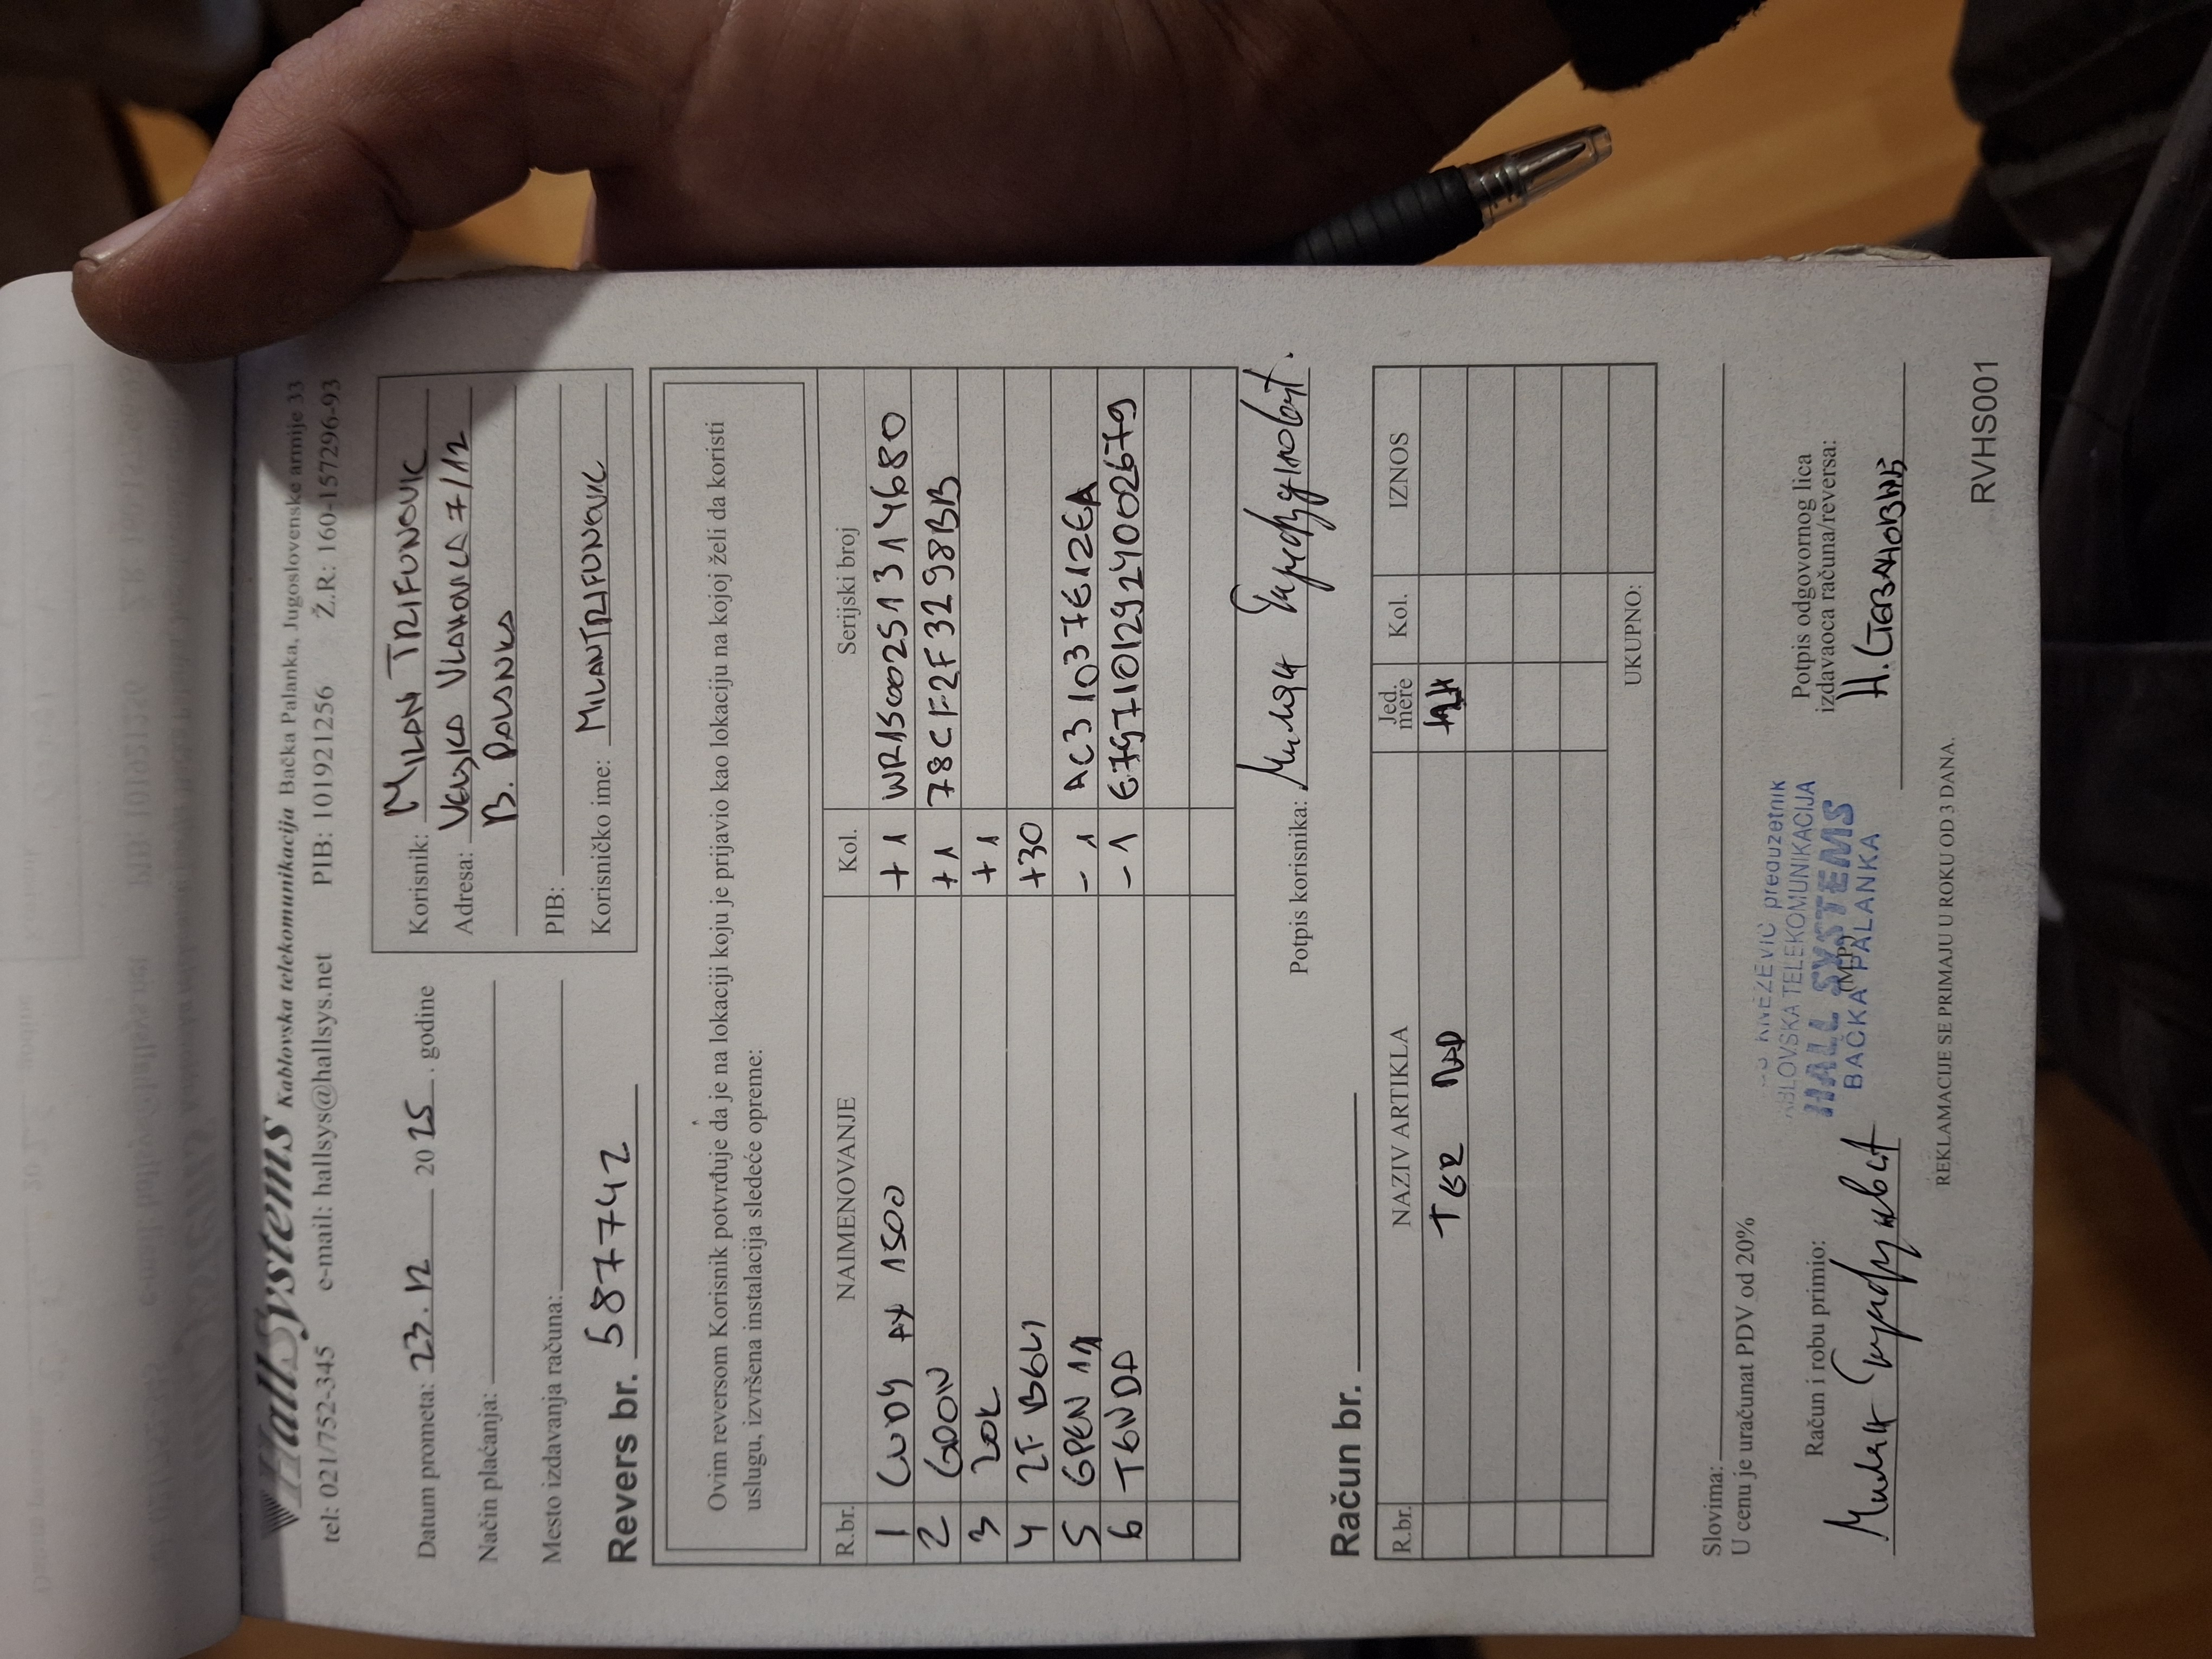 HallSystems Kablovska telekomunikacija Bačka Palanka, Jugoslovenske armije 33
tel: 021/752-345 e-mail: hallsys@hallsys.net PIB: 101921256 Ž.R: 160-1572296-93
Datum prometa: 23.12 2025. godine
Način plaćanja:
Mesto izdavanja računa:
Revers br. 587742
Korisnik: MILAN TRIFUNOVIC
Adresa: VELJKA VLAHOVICA 7/12
B. PALANKA
PIB:
Korisničko ime: MILANTRIFUNOVIC
Ovim reversom Korisnik potvrđuje da je na lokaciji koju je prijavio kao lokaciju na kojoj želi da koristi
uslugu, izvršena instalacija sledeće opreme:
R.br. NAIMENOVANJE Kol. Serijski broj
1 CUDY AX 1500 +1 WR1500251314680
2 GOON +1 78CF2F3298BB
3 ZOK +1
4 2F B6L1 +30
5 GPEN 11 -1 AC31037612EA
6 TENDA -1 E7971012924002679
Potpis korisnika: Милан Трифуновић
Račun br.
R.br. NAZIV ARTIKLA Jed. mere Kol. IZNOS
TER RAD
UKUPNO:
Slovima:
U cenu je uračunat PDV od 20%
Račun i robu primio:
Милан Трифуновић
KNEŽEVIĆ preduzetnik
KABLOVSKA TELEKOMUNIKACIJA
HALL SYSTEMS
(M.P.)
BAČKA PALANKA
Potpis odgovornog lica
izdavaoca računa/reversa:
Н. Стевановић
REKLAMACIJE SE PRIMAJU U ROKU OD 3 DANA.
RVHS001